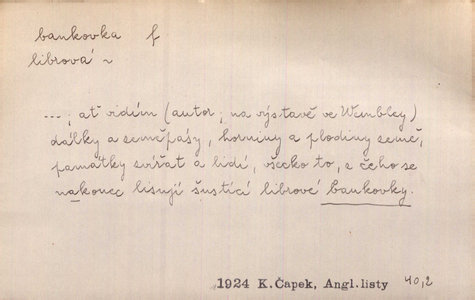 bankovka f.
librová ~
---; ať vidím (autor, na výstavě ve Wembley)
dálky a zeměpásy, horniny a plodiny země,
památky zvířat a lidí, všecko to, z čeho se
nakonec lisují šustící librové bankovky.
1924 K. Čapek, Angl. listy 40,2